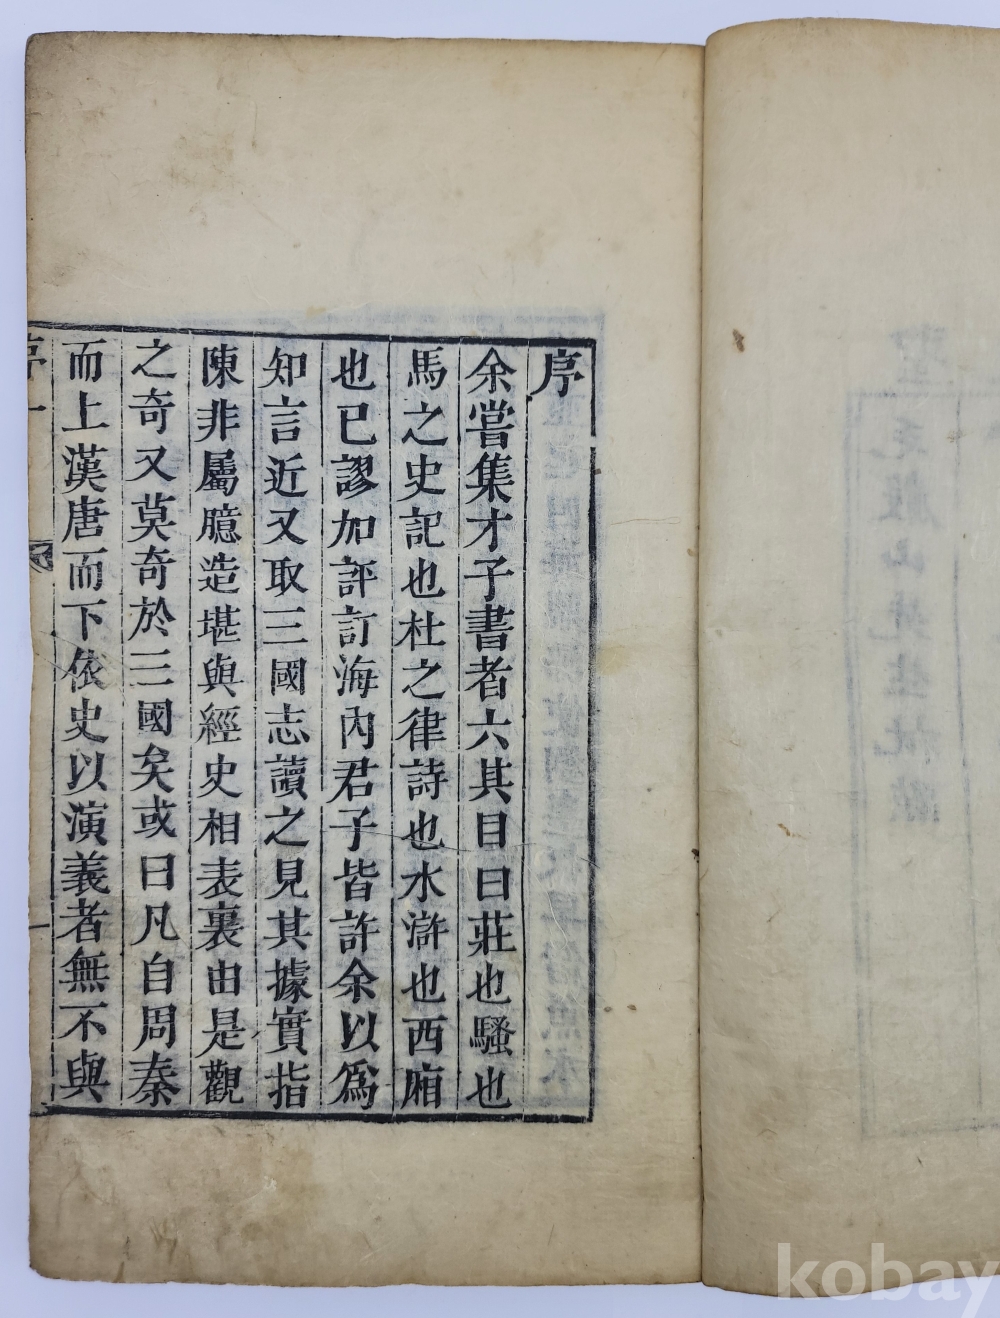 序
余嘗集才子書者六其目曰莊也騷也
馬之史記也杜之律詩也水滸也西廂
也已謬加評訂海內君子皆許余以爲
知言近又取三國志讀之見其據實指
陳非屬臆造堪與經史相表裏由是觀
之奇又莫奇於三國矣或曰凡自周秦
而上漢唐而下依史以演義者無不與
序
一
kobay